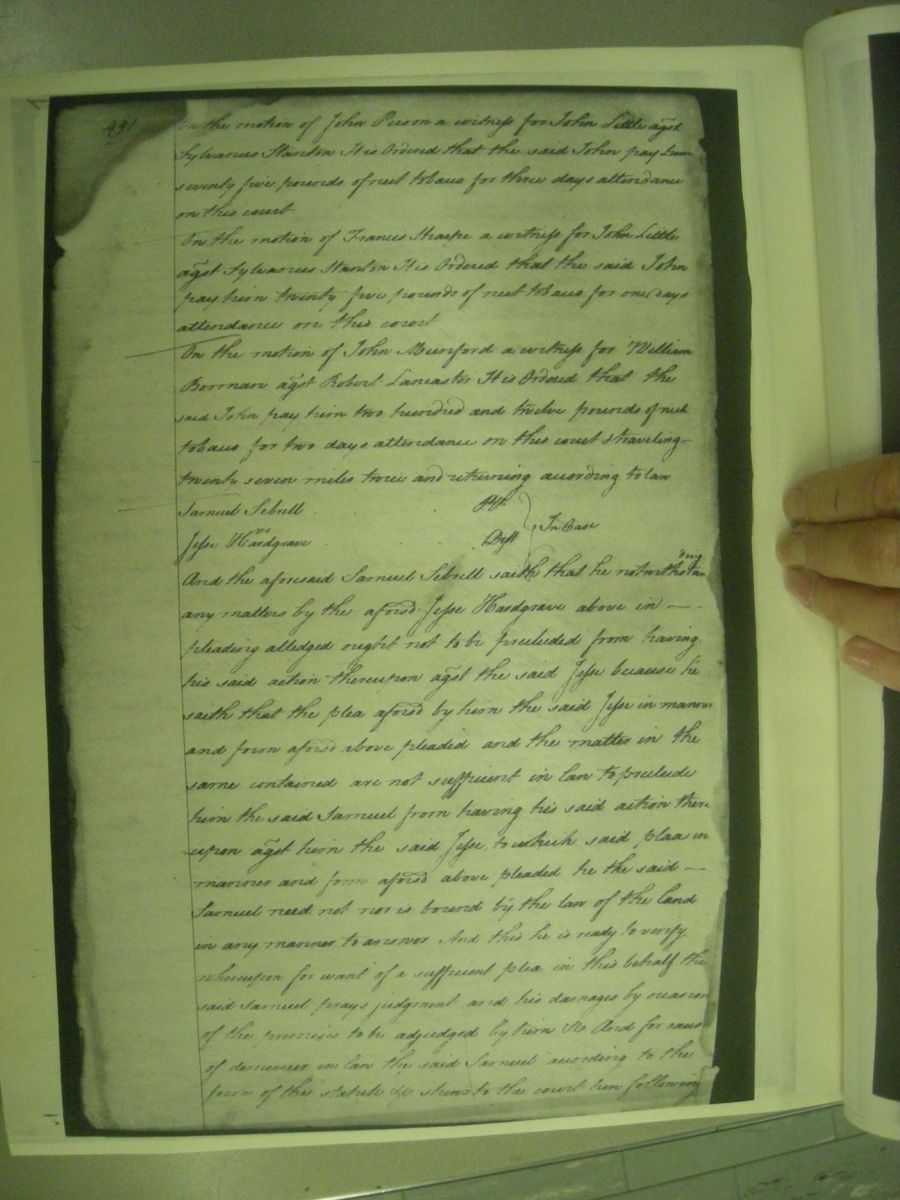 491
On the motion of John Pierson a witness for John Little agst
Sylvanus Stanton It is Ordered that the said John pay him
seventy five pounds of nett tobacco for three days attendance
on this court
On the motion of Francis Sharpe a witness for John Little
agst Sylvanus Stanton It is Ordered that the said John
pay him twenty five pounds of nett tobacco for one days
attendance on this court
On the motion of John Munford a witness for William
Borman agst Robert Lancaster It is Ordered that the
said John pay him two hundred and twelve pounds of nett
tobacco for two days attendance on this court & traveling
twenty seven miles twice and returning according to law
Samuel Sebrell Plt.
vs In Case
Jesse Hardgrave Deft
And the aforesaid Samuel Sebrell saith that he notwithstanding
any matters by the aforsd Jesse Hardgrave above in —
pleading alledged ought not to be precluded from having
his said action thereupon agst the said Jesse because he
saith that the plea aforsd by him the said Jesse in manner
and form aforsd above pleaded and the matter in the
same contained are not sufficient in Law to preclude
him the said Samuel from having his said action there
-upon agst him the said Jesse to which said plaa in
manner and form aforsd above pleaded he the said —
Samuel need not nor is bound by the law of the land
in any manner to answer And this he is ready to verify
whereupon for want of a sufficient plea in this behalf the
said Samuel prays judgment and his damages by occasion
of the premises to be adjudged by him &c And for cause
of demurrer in Law the said Samuel according to the
form of the statute &c shews to the court here following